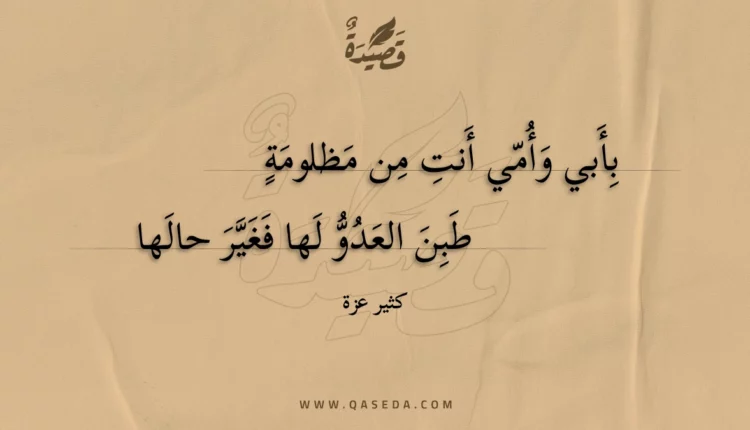 قَصِيدَةٌ
بِأَبي وَأُمّي أَنتِ مِن مَظلومَةٍ
طَبِنَ العَدُوُّ لَها فَغَيَّرَ حالَها
كثير عزة
WWW.QASEDA.COM